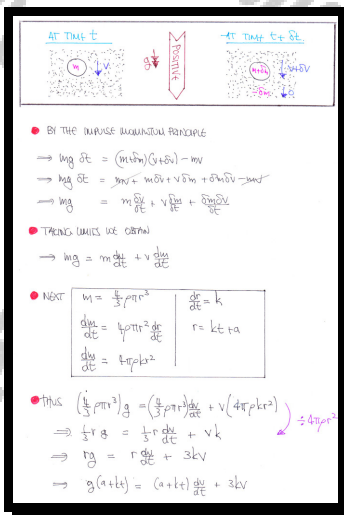 AT TIME t
AT TIME t + δt
m
v
g
POSITIVE
m+δm
v+δv
δm
0
BY THE IMPULSE MOMENTUM PRINCIPLE
⇒ mg δt = (m+δm)(v+δv) - mv
⇒ mg δt = mv + mδv + vδm + δmδv - mv
⇒ mg = m δv/δt + v δm/δt + δmδv/δt
TAKING LIMITS WE OBTAIN
⇒ mg = m dv/dt + v dm/dt
NEXT
m = 4/3 ρπr³
dr/dt = k
dm/dt = 4ρπr² dr/dt
r = kt + a
dm/dt = 4πρkr²
THUS (4/3 ρπr³)g = (4/3 ρπr³) dv/dt + v(4πρkr²)
÷4πρr²
⇒ 1/3 r g = 1/3 r dv/dt + vk
⇒ rg = r dv/dt + 3kv
⇒ g(a+kt) = (a+kt) dv/dt + 3kv